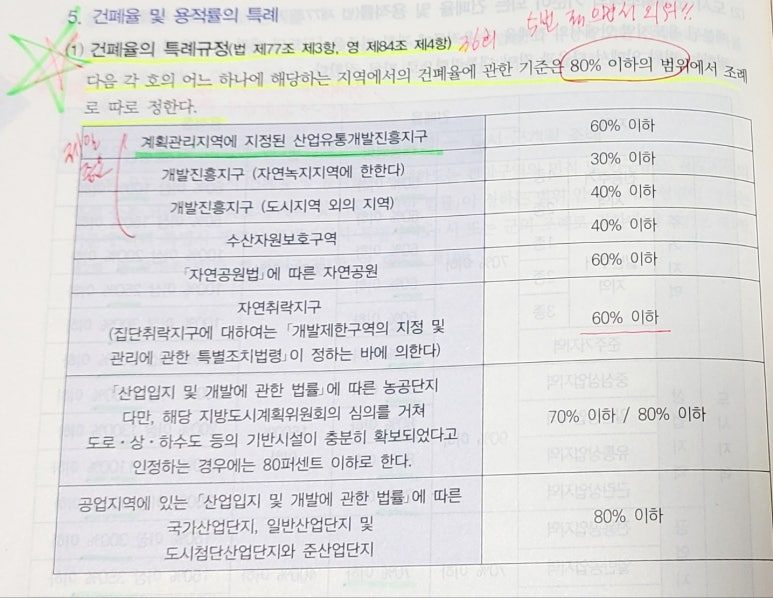 5. 건폐율 및 용적률의 특례
(1) 건폐율의 특례규정(법 제77조 제3항, 영 제84조 제4항) 36회
다음 각 호의 어느 하나에 해당하는 지역에서의 건폐율에 관한 기준은 80% 이하의 범위에서 조례
로 따로 정한다.
계획관리지역에 지정된 산업유통개발진흥지구 60% 이하
개발진흥지구 (자연녹지지역에 한한다) 30% 이하
개발진흥지구 (도시지역 외의 지역) 40% 이하
수산자원보호구역 40% 이하
「자연공원법」에 따른 자연공원 60% 이하
자연취락지구
(집단취락지구에 대하여는 「개발제한구역의 지정 및
관리에 관한 특별조치법령」이 정하는 바에 의한다)
60% 이하
「산업입지 및 개발에 관한 법률」에 따른 농공단지
다만, 해당 지방도시계획위원회의 심의를 거쳐
도로·상·하수도 등의 기반시설이 충분히 확보되었다고
인정하는 경우에는 80퍼센트 이하로 한다.
70% 이하 / 80% 이하
공업지역에 있는 「산업입지 및 개발에 관한 법률」에 따른
국가산업단지, 일반산업단지 및
도시첨단산업단지와 준산업단지
80% 이하